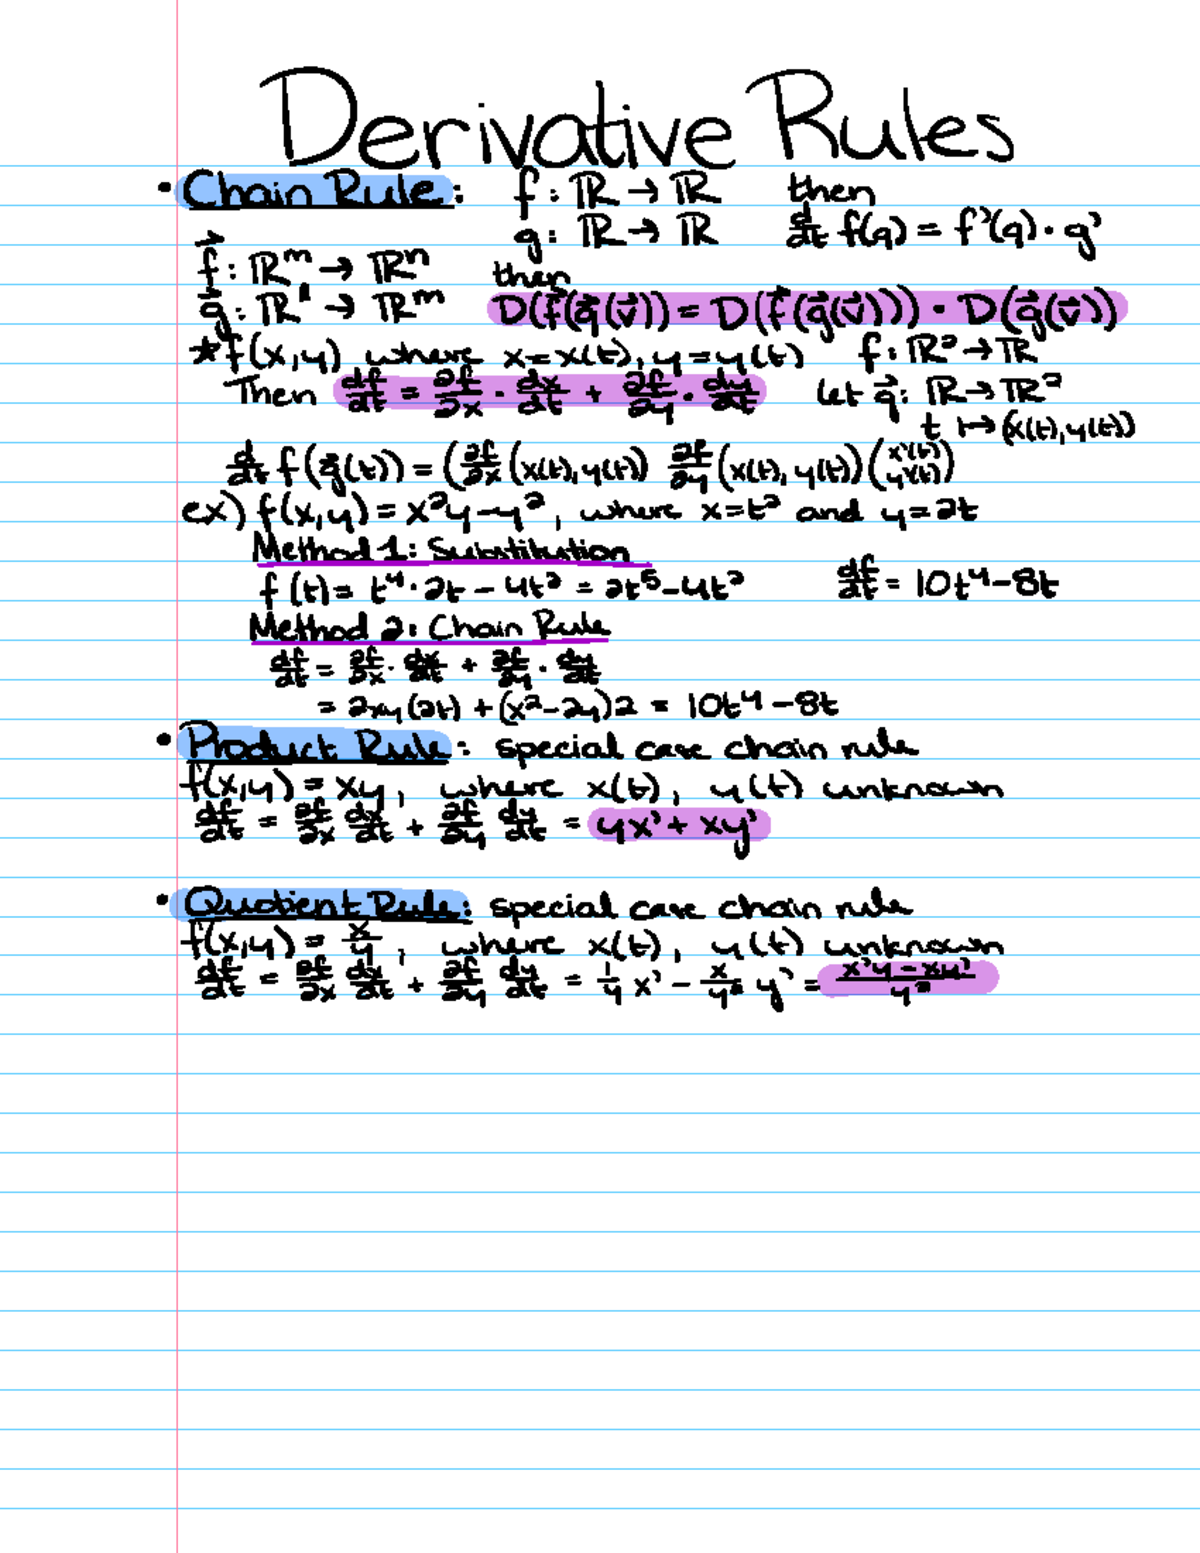 Derivative Rules
• Chain Rule: f : ℝ → ℝ then
g : ℝ → ℝ d/dt f(g) = f'(g) · g'
f⃗ : ℝᵐ → ℝⁿ then
g⃗ : ℝˡ → ℝᵐ D(f⃗(g⃗(v⃗)) = D(f⃗(g⃗(v⃗))) · D(g⃗(v⃗))
* f(x,y) where x = x(t), y = y(t) f : ℝ² → ℝ
Then df/dt = ∂f/∂x · dx/dt + ∂f/∂y · dy/dt let g⃗ : ℝ → ℝ²
t ↦ (x(t), y(t))
d/dt f(g⃗(t)) = (∂f/∂x (x(t), y(t)) ∂f/∂y (x(t), y(t)) (x'(t) y'(t))
ex) f(x,y) = x²y - y², where x = t² and y = 2t
Method 1: Substitution
f(t) = t⁴ · 2t - 4t² = 2t⁵ - 4t² df/dt = 10t⁴ - 8t
Method 2: Chain Rule
df/dt = ∂f/∂x · dx/dt + ∂f/∂y · dy/dt
= 2xy(2t) + (x² - 2y)2 = 10t⁴ - 8t
• Product Rule: special case chain rule
f(x,y) = xy, where x(t), y(t) unknown
df/dt = ∂f/∂x dx/dt + ∂f/∂y dy/dt = yx' + xy'
• Quotient Rule: special case chain rule
f(x,y) = x/y, where x(t), y(t) unknown
df/dt = ∂f/∂x dx/dt + ∂f/∂y dy/dt = 1/y x' - x/y² y' = (x'y - xy')/y²